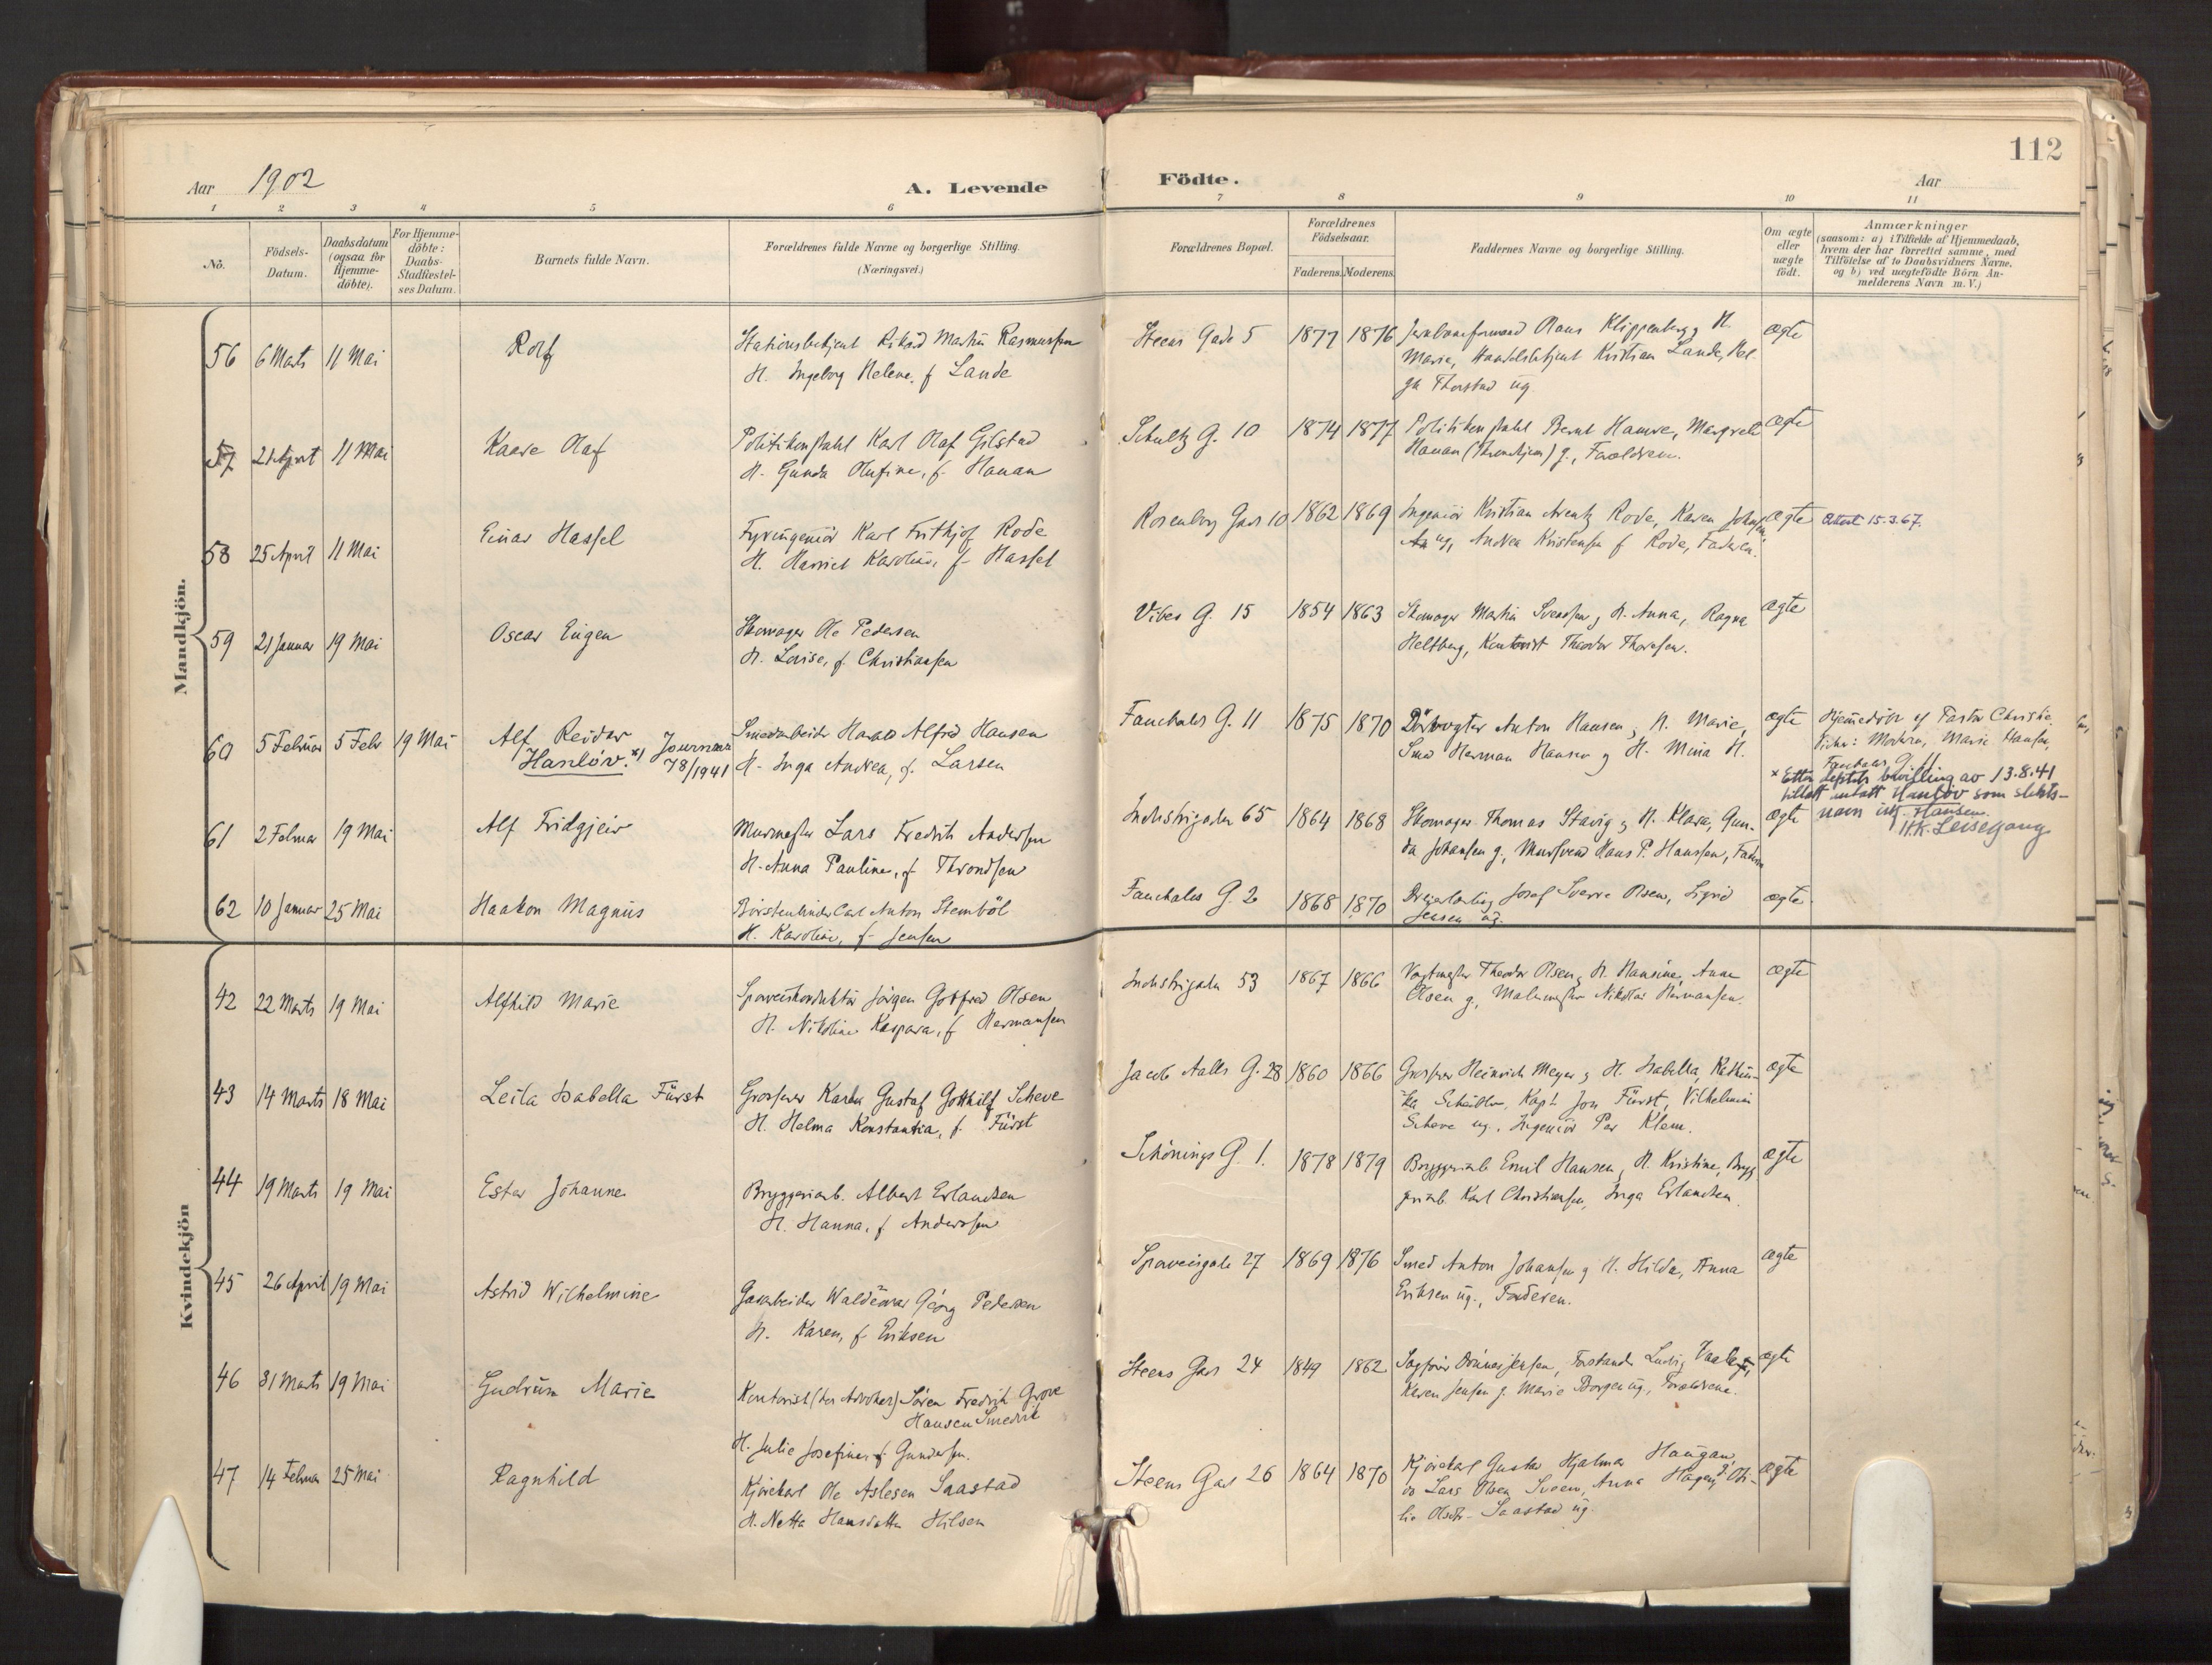 112
Aar 1902
A. Levende
Födte.
Aar
1 2 3 4 5 6 7 8 9 10 11
No.
Födsels-
Datum.
Daabsdatum
(ogsaa for
Hjemme-
döbte).
For Hjemme-
döbte:
Daabs-
Stadfæstel-
ses Datum.
Barnets fulde Navn.
Forældrenes fulde Navne og borgerlige Stilling.
(Næringsvei.)
Forældrenes Bopæl.
Forældrenes
Födselsaar.
Faderens. Moderens.
Faddernes Navne og borgerlige Stilling.
Om ægte
eller
uægte
födt.
Anmærkninger
(saasom: a) i Tilfælde af Hjemmedaab,
hvem der har forrettet samme, med
Tilföielse af to Daabsvidners Navne,
og b) ved uægtefödte Börn An-
melderens Navn m.V.)
Mandkjön.
56 6 Marts 11 Mai Rolf
Stationsbetjent Rikard Martin Rasmussen
H. Ingeborg Helene, f Lande
Steens Gade 5 1877 1876
Jernbaneformand Olaus Klippenberg g H.
Marie, Handelsbetjent Kristian Lande, Hel-
ga Thorstad ug.
ægte
57 21 April 11 Mai Kaare Olaf
Politikonstabel Karl Olaf Gilstad
H. Gunda Olufine, f. Hanan
Schultz G. 10 1874 1877
Politikonstabel Bernt Hamre, Margrete
Hanan (Throndhjem) g., Forældrene.
ægte
58 25 April 11 Mai Einar Hassel
Fyringeniör Karl Frithjof Rode
H. Harriet Karoline, f. Hassel
Rosenborg Gade 10 1862 1869
Ingeniör Kristian Arentz Rode, Karen Johnsen
ug, Andrea Kristensen f Rode, Faderen.
ægte
Attest 15.3.67.
59 21 Januar 19 Mai Oscar Eugen
Skomager Ole Pedersen
H. Louise, f. Christiansen
Vibes G. 15 1854 1863
Skomager Martin Svendsen g H. Anna, Ragna
Heltberg, Kontorist Theodor Thoresen.
ægte
60 5 Februar 5 Febr 19 Mai Alf Reidar
Hanlöv. *) Journal
78/1941
Smedarbeider Harald Alfred Hansen
H. Inga Andrea, f. Larsen
Fauchalds G. 11 1875 1870
Anton Hansen g H. Marie,
Smed Herman Hansen g H. Mina H.
ægte
Hjemmedöbt af Pastor Christie.
Vidner: Moderen, Marie Hansen,
Fauchalds G. 11
* Etter bevilling av 13.8.41
tillatt antatt Hanlöv som slekts-
navn istf. Hansen.
H.K. Leisegang
61 2 Februar 19 Mai Alf Fridgjeir
Murmester Lars Fredrik Andersen
H. Anna Pauline, f. Throndsen
Industrigaden 65 1864 1868
Skomager Thomas Stavig g H. Klara, Gun-
da Johansen g., Mursvend Hans P. Hanssen, Faderen
ægte
62 10 Januar 25 Mai Haakon Magnus
Börstenbinder Carl Anton Stemböl
H. Karoline, f. Jensen
Fauchalds G. 2 1868 1870
Josef Sverre Olsen, Sigrid
Jensen ug.
ægte
Kvindekjön
42 22 Marts 19 Mai Alfhild Marie
Sporveiskonduktör Jörgen Gotfred Olsen
H. Nikoline Kaspara, f Hermansen
Industrigaden 53 1867 1866
Vogtmester Theodor Olsen g H. Hansine, Anna
Olsen g, Malermester Nikolai Hermansen.
ægte
43 14 Marts 18 Mai Leila Isabella Fürst
Grosserer Karl Gustaf Gotthilf Scheve
H. Helma Konstantia, f. Fürst
Jacob Aalls G. 28 1860 1866
Grosserer Heinrich Meyer g H. Isabella, Kathin-
ka Scheidler, Kapt Jon Fürst, Vilhelmine
Scheve ug., Ingeniör Per Klem.
ægte
44 19 Marts 19 Mai Ester Johanne
Bryggeriarb. Albert Erlandsen
H. Hanna, f. Anderssen
Schönings G. 1. 1878 1879
Bryggeriarb Emil Hansen, H. Kristine, Brygg
geriarb. Karl Christiansen, Inga Erlandsen.
ægte
45 26 April 19 Mai Astrid Wilhelmine
Gasarbeider Waldemar Georg Pedersen
H. Karen, f. Eriksen
Sporveisgade 27 1869 1876
Smed Anton Johansen g H. Hilda, Anna
Eriksen ug., Faderen.
ægte
46 31 Marts 19 Mai Gudrun Marie
Kontorist (hos Advokat) Sören Fredrik Grove
Hansen Smedvik
H. Julie Josefine, f. Gundersen.
Steens Gade 24 1849 1862
Sagförer Jensen, Forstander Ludvig
Karen Jensen g. Marie Borgen ug., Forældrene.
ægte
47 14 Februar 25 Mai Ragnhild
Kjörekarl Ole Aslesen Saastad
H. Netta Hansdatter Hilsen
Steens Gad 26 1864 1870
Kjörekarl Gustav Hjalmar Haugan,
do Lars Olsen Sveen, Anna Hagen g. Oti-
lie Olsdtr. Saastad ug.
ægte